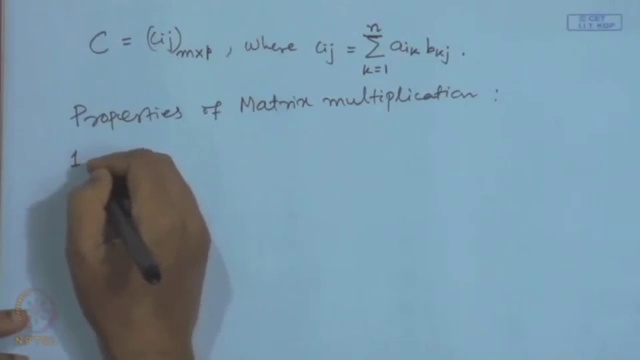 © CET
I.I.T. KGP
C = (cij)m×p , where cij = n∑k=1 aik bkj .
Properties of Matrix multiplication :
1
NPTEL